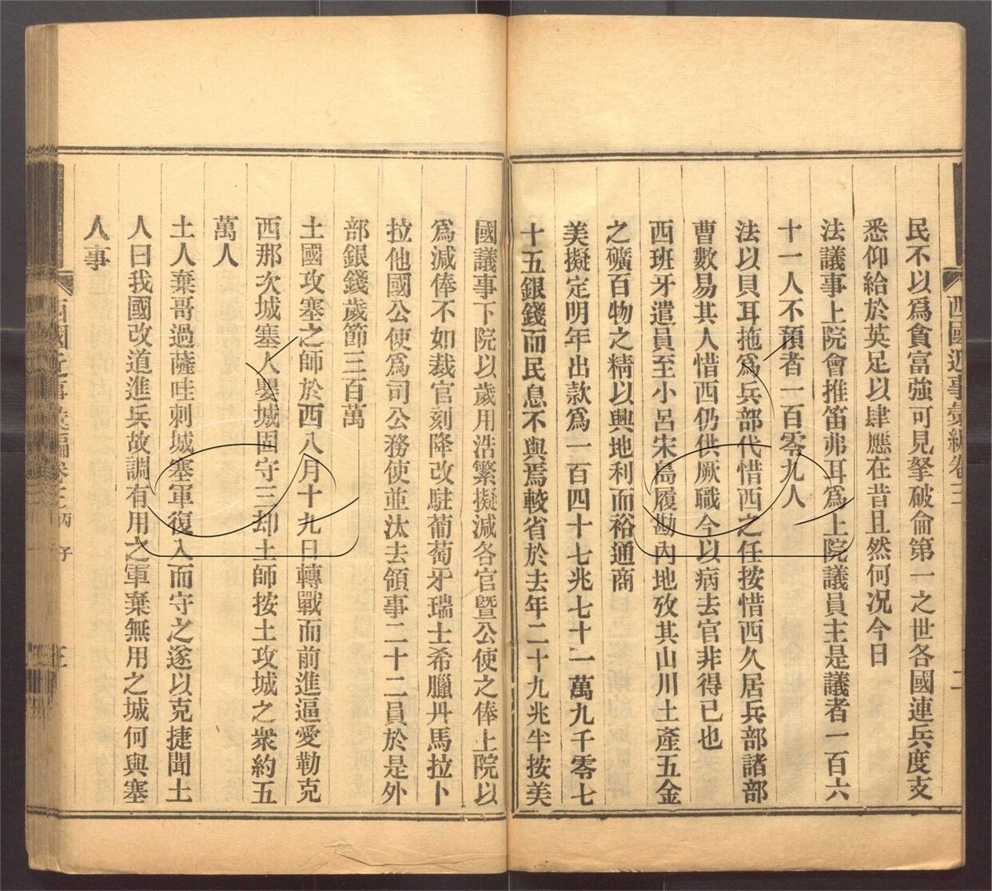 民不以爲貪富強可見拏破侖第一之世各國連兵度支
悉仰給於英足以肆應在昔且然何况今日
法議事上院會推笛弗耳爲上院議員主是議者一百六
十一人不預者一百零九人
法以貝耳拖爲兵部代惜西之任按惜西久居兵部諸部
曹數易其人惜西仍供厥職今以病去官非得已也
西班牙遣員至小呂宋島履勘內地攷其山川土產五金
之礦百物之精以興地利而裕通商
美擬定明年出款爲一百四十七兆七十一萬九千零七
十五銀錢而民息不與焉較省於去年二十九兆半按美
國議事下院以歲用浩繁擬減各官曁公使之俸上院以
爲減俸不如裁官刻降改駐葡萄牙瑞士希臘丹馬拉卜
拉他國公使爲司公務使並汰去領事二十二員於是外
部銀錢歲節三百萬
土國攻塞之師於西八月十九日轉戰而前進逼愛勒克
西那次城塞人嬰城固守三却土師按土攻城之衆約五
萬人
土人棄哥過薩哇刺城塞軍復入而守之遂以克捷聞土
人曰我國改道進兵故調有用之軍棄無用之城何與塞
人事
西國近事彙編卷三